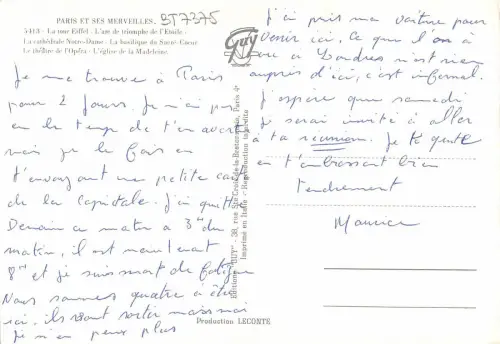 PARIS ET SES MERVEILLES.
BT7375
5413 - La tour Eiffel - L'arc de triomphe de l'Etoile -
La cathédrale Notre-Dame - La basilique du Sacré-Coeur
Le théâtre de l'Opéra - L'église de la Madeleine.
Je me trouve à Paris
pour 2 jours. Je n'ai pas
eu le temps de t'en avertir
mais je le fais en
t'envoyant une petite carte
de la Capitale. J'ai quitté
Demain ce matin à 3h du
matin, il est maintenant
8h et je suis mort de fatigue
Nous sommes quatre à être
ici, ils vont sortir mais moi
je n'en peux plus
GUY
Editions "GUY" - 38, rue Ste Croix-de-la-Bretonnerie, Paris 4e
Imprimé en Italie - Reproduction interdite
Production LECONTE
J'ai pris ma voiture pour
venir ici. Ce que l'on a
à Londres n'est rien
auprès d'ici, c'est infernal.
J'espère que samedi
je serai invité à aller
à ta réunion. Je te quitte
en t'embrassant bien
tendrement
Maurice